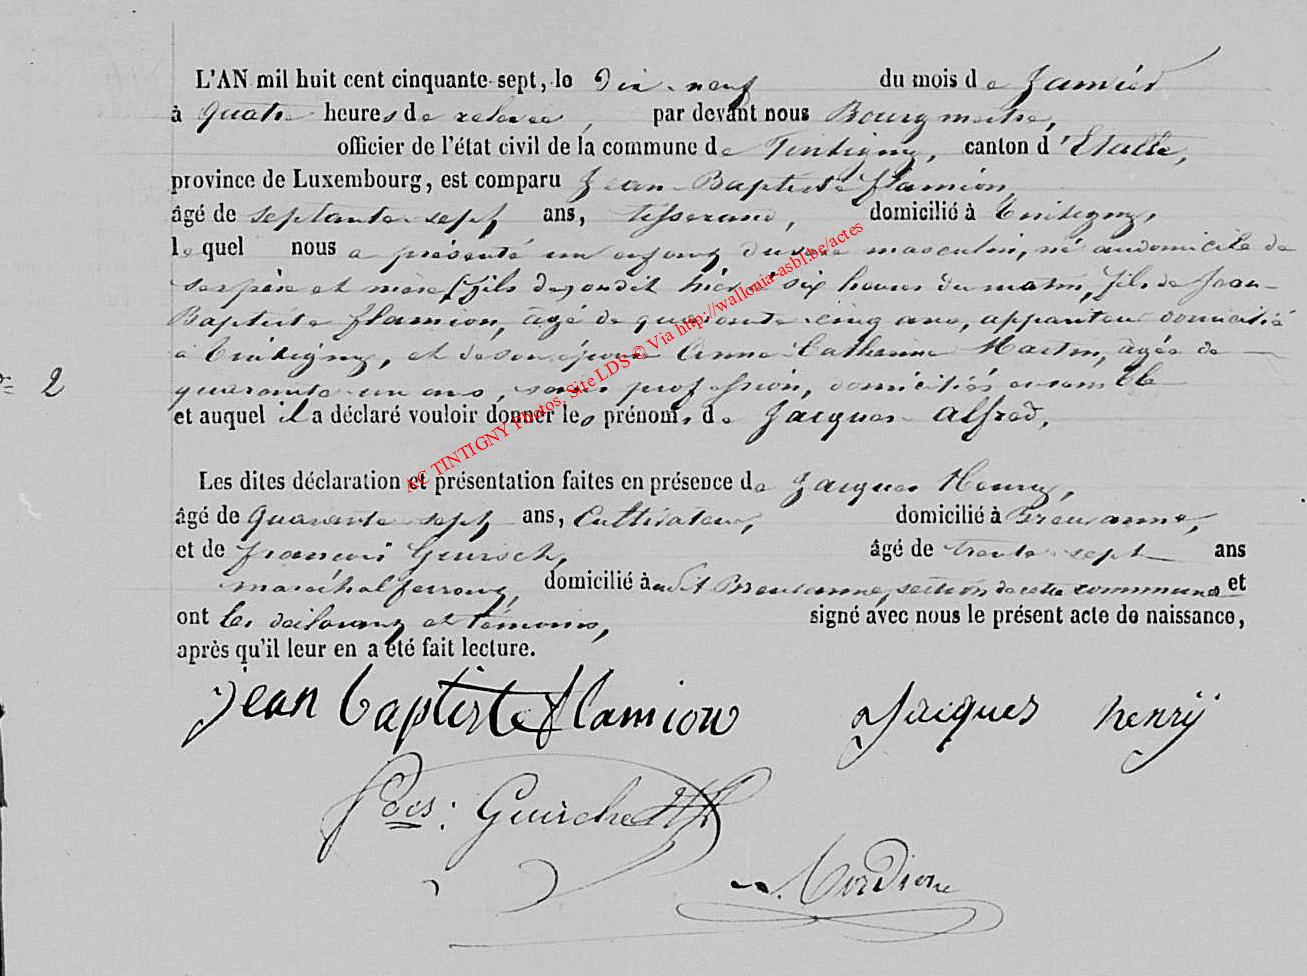 L'AN mil huit cent cinquante-sept, le Dix-neuf du mois de Janvier
à quatre heures de relevée, par devant nous Bourgmestre,
officier de l'état civil de la commune de Tintigny, canton d'Etalle,
province de Luxembourg, est comparu Jean-Baptiste Flamion,
âgé de septante-sept ans, tisserand, domicilié à Tintigny,
lequel nous a présenté un enfant du sexe masculin, né au domicile de
ses père et mère fils du jour dit hier six heures du matin, fils de Jean-
Baptiste Flamion, âgé de quarante-cinq ans, appariteur domicilié
à Tintigny, et de son épouse Anne-Catherine Martin, âgée de
2
quarante-un ans, sans profession, domiciliés ensemble
et auquel il a déclaré vouloir donner les prénoms de Jacques-Alfred.
Les dites déclaration et présentation faites en présence de Jacques Henry,
âgé de quarante-sept ans, Cultivateur, domicilié à Breuvanne,
et de François Guirsch, âgé de trente-sept ans
maréchal ferrant, domicilié à Breuvanne, section de cette commune et
ont les déclarant et témoins, signé avec nous le présent acte de naissance,
après qu'il leur en a été fait lecture.
jean baptiste flamion Jacques henrÿ
Fçois: Guirche
AC TINTIGNY Photos. Site LDS © Via http://wallonia-asbl.be/actes